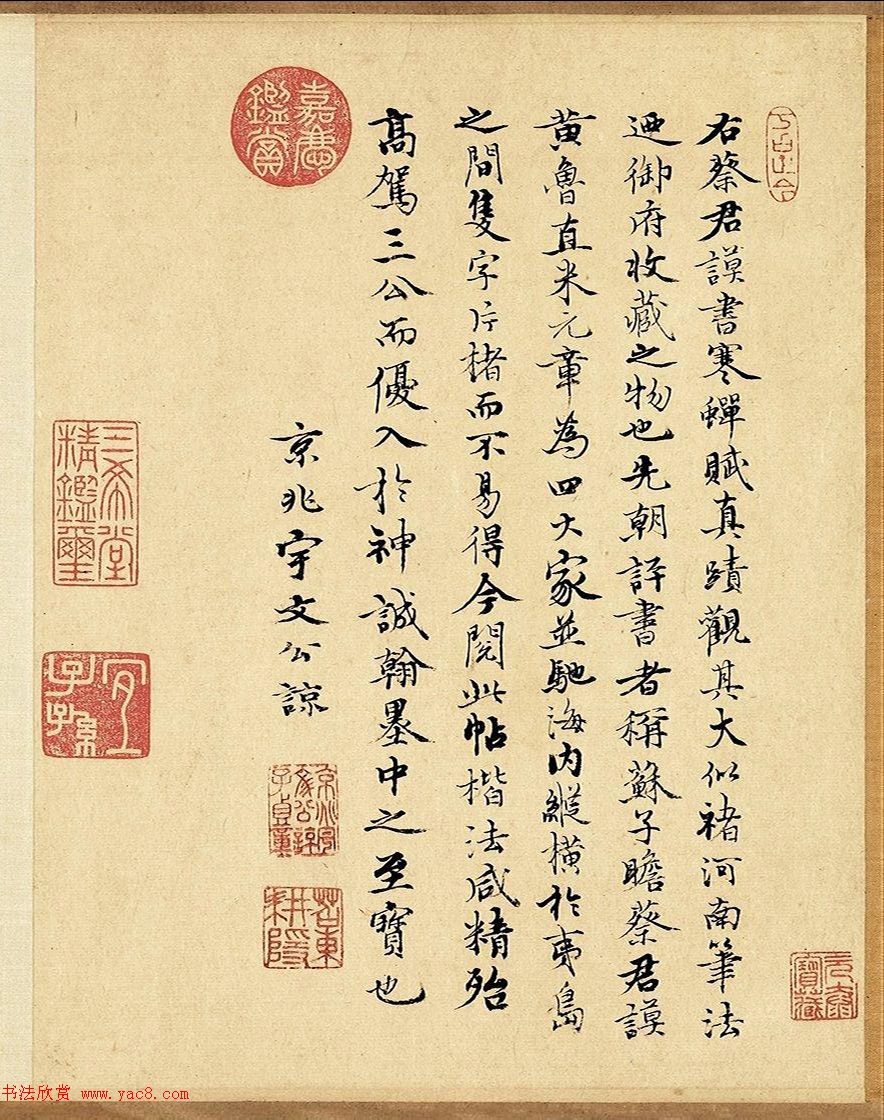 右蔡君謨書寒蟬賦真蹟觀其大似禇河南筆法
迺御府收藏之物也先朝評書者稱蘇子瞻蔡君謨
黄魯直米元章為四大家並馳海内縱橫於夷島
之間隻字片楮而不易得今閲此帖楷法咸精殆
髙駕三公而優入於神誠翰墨中之至寶也
京兆宇文公諒
嘉慶
鑑賞
三希堂
精鑑璽
宜
子孫
苕東
耕隱
书法欣赏 www.yac8.com